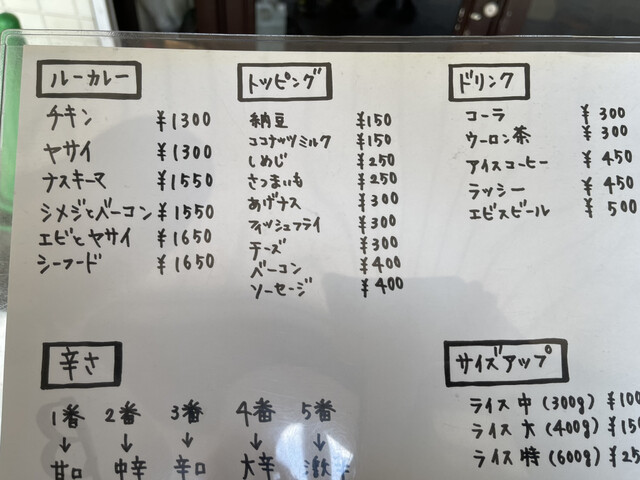 ルーカレー
チキン ¥1300
ヤサイ ¥1300
ナスキーマ ¥1550
シメジとベーコン ¥1550
エビとヤサイ ¥1650
シーフード ¥1650
トッピング
納豆 ¥150
ココナッツミルク ¥150
しめじ ¥250
さつまいも ¥250
あげナス ¥300
フィッシュフライ ¥300
チーズ ¥300
ベーコン ¥400
ソーセージ ¥400
ドリンク
コーラ ¥300
ウーロン茶 ¥300
アイスコーヒー ¥450
ラッシー ¥450
エビスビール ¥500
辛さ
1番 2番 3番 4番 5番
↓ ↓ ↓ ↓ ↓
甘口 中辛 辛口 大辛 激辛
サイズアップ
ライス中(300g) ¥100
ライス大(400g) ¥15
ライス特(600g) ¥25